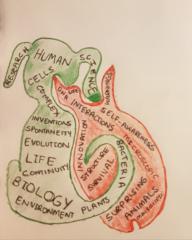 RESEARCH
HUMAN
SCIENCE
CELLS
DNA
LIFE
COMPLEX
INTERACTIONS
SELF-AWARENESS
INVENTIONS
SPONTANEITY
EVOLUTION
LIFE
CONTINUITY
BIOLOGY
ENVIRONMENT
INNOVATION
STRUCTURE
SURVIVAL
BACTERIA
MICROSCOPIC
PLANTS
SURPRISING
ANIMALS